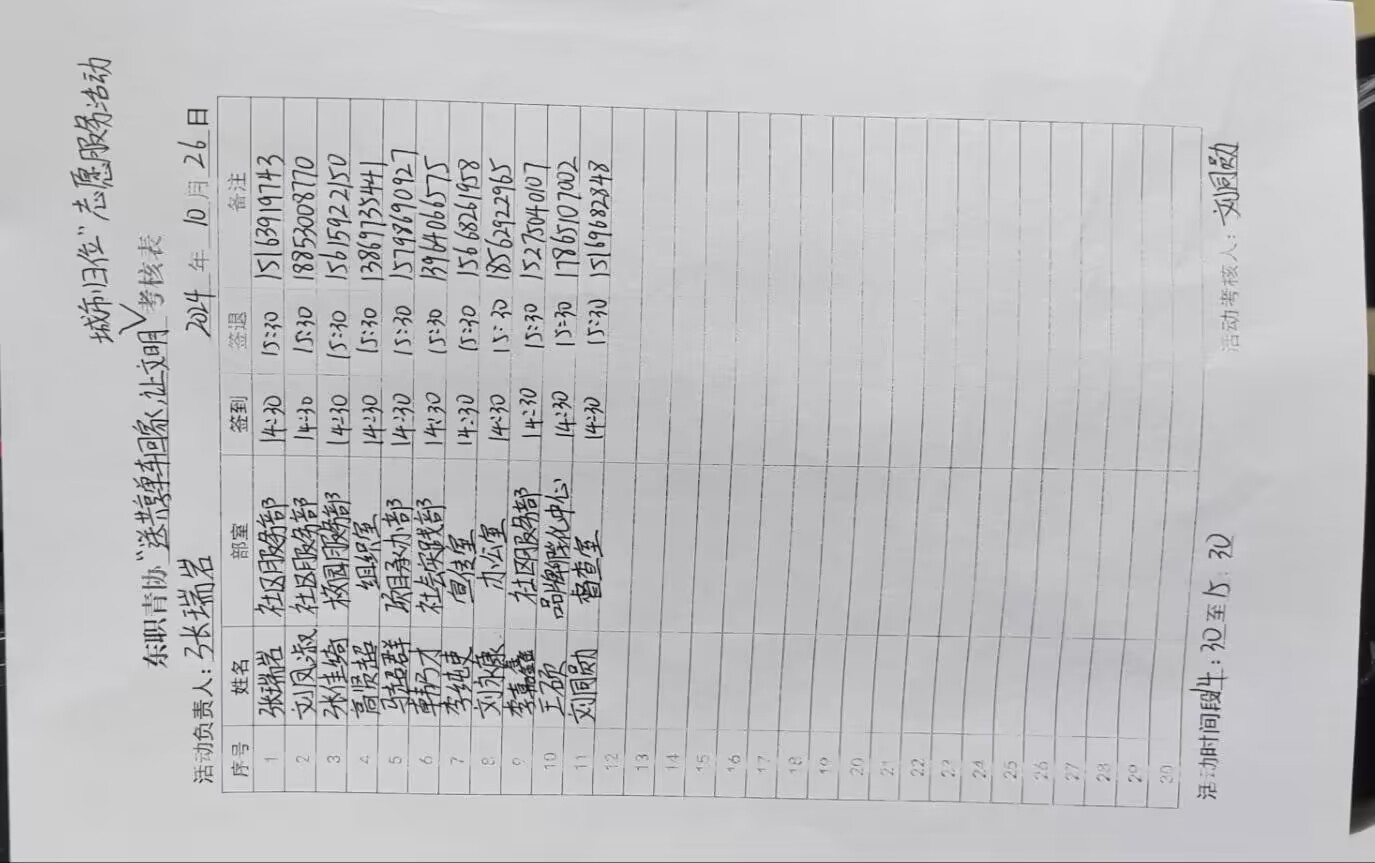 城市归位"志愿服务活动
东职青协"送共享单车回家,让文明 考核表
活动负责人：张瑞岩 2024 年 10 月 26 日
序号 姓名 部室 签到 签退 备注
1 张瑞岩 社区服务部 14:30 15:30 15163919743
2 刘凤淑 社区服务部 14:30 15:30 18853008770
3 张佳绮 校园服务部 14:30 15:30 15615922150
4 高贤超 组织室 14:30 15:30 13869735441
5 超群 项目承办部 14:30 15:30 15798690927
6 韩巧才 社会实践部 14:30 15:30 13964066575
7 李纯吏 宣传室 14:30 15:30 15668261958
8 刘永康 办公室 14:30 15:30 18562922965
9 李嘉鑫 社区服务部 14:30 15:30 15275040107
10 王硕 品牌孵化中心 14:30 15:30 17865107002
11 刘同勋 督查室 14:30 15:30 15169682848
12
13
14
15
16
17
18
19
20
21
22
23
24
25
26
27
28
29
30
活动时间段14:30至15:30 活动考核人：刘同勋